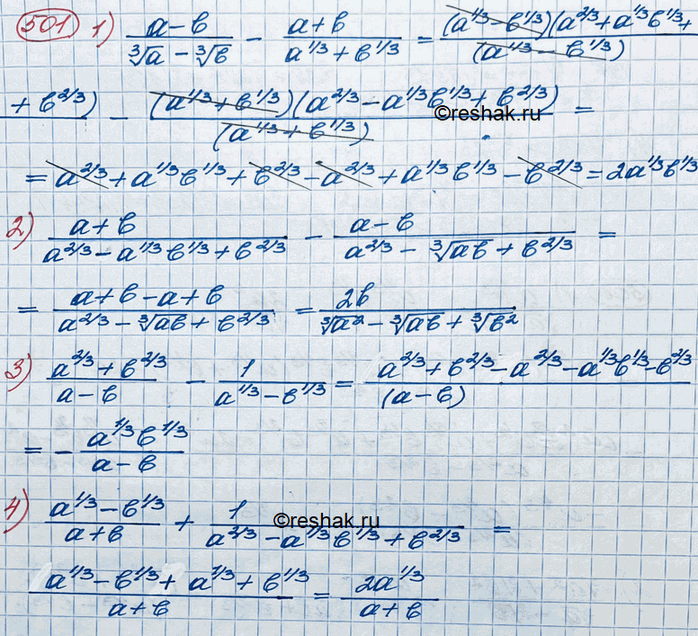 501 1) (a-b)/(∛a - ∛b) - (a+b)/(a^1/3 + b^1/3) = (a^1/3 - b^1/3)(a^2/3 + a^1/3 b^1/3 + / (a^1/3 - b^1/3)
+ b^2/3) - (a^1/3 + b^1/3)(a^2/3 - a^1/3 b^1/3 + b^2/3) / (a^1/3 + b^1/3) =
©reshak.ru
= a^2/3 + a^1/3 b^1/3 + b^2/3 - a^2/3 + a^1/3 b^1/3 - b^2/3 = 2a^1/3 b^1/3
2) (a+b)/(a^2/3 - a^1/3 b^1/3 + b^2/3) - (a-b)/(a^2/3 - ∛ab + b^2/3) =
= (a+b-a+b)/(a^2/3 - ∛ab + b^2/3) = 2b/(∛a² - ∛ab + ∛b²)
3) (a^2/3 + b^2/3)/(a-b) - 1/(a^1/3 - b^1/3) = (a^2/3 + b^2/3 - a^2/3 - a^1/3 b^1/3 - b^2/3)/(a-b)
= - (a^1/3 b^1/3)/(a-b)
4) (a^1/3 - b^1/3)/(a+b) + 1/(a^2/3 - a^1/3 b^1/3 + b^2/3) =
©reshak.ru
(a^1/3 - b^1/3 + a^1/3 + b^1/3)/(a+b) = 2a^1/3/(a+b)